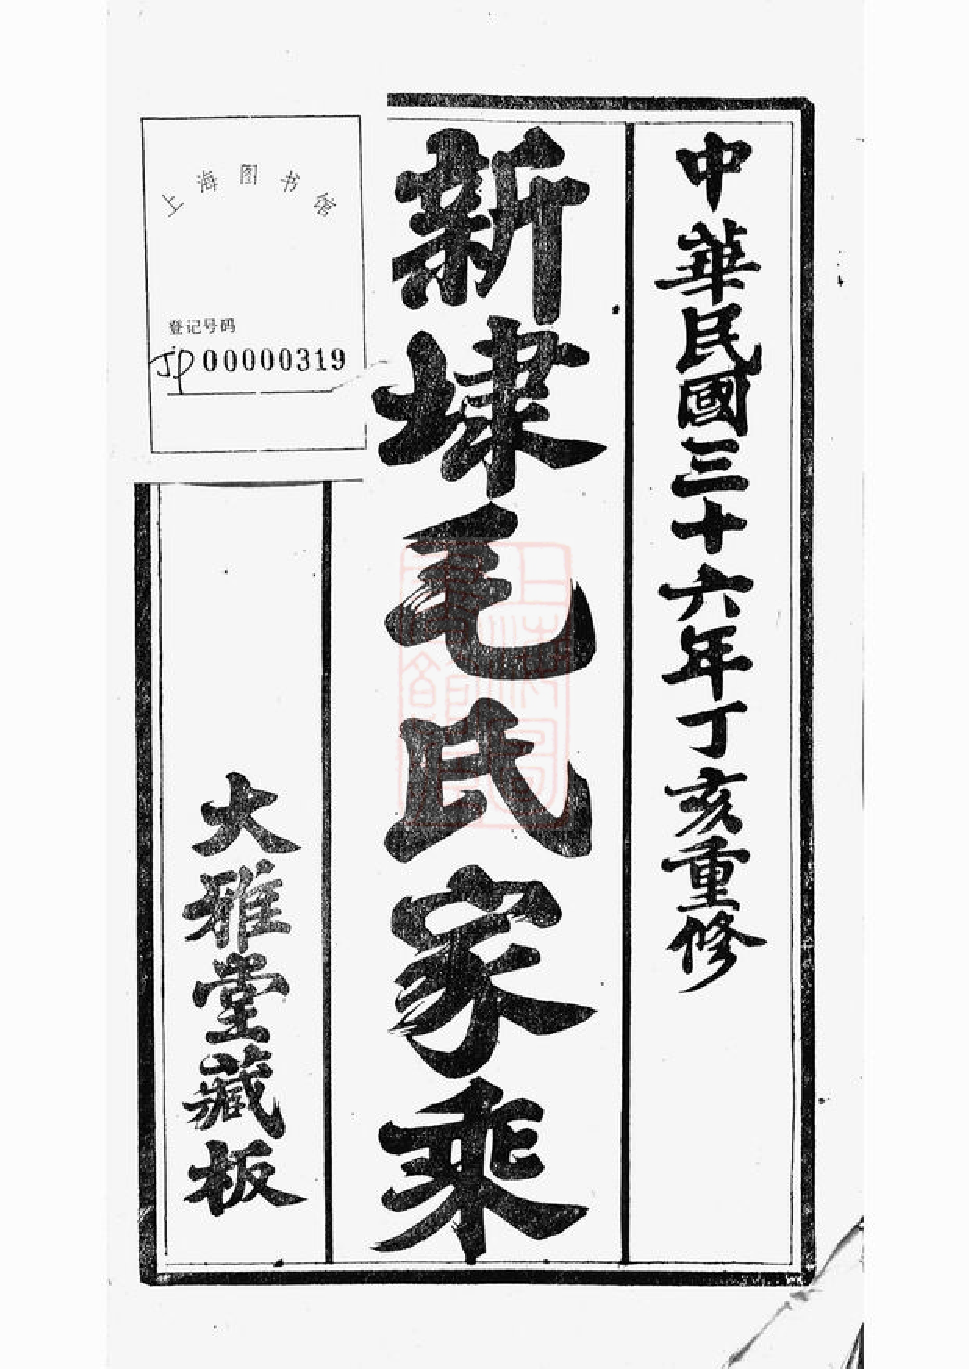 中華民國三十六年丁亥重修
新埭毛氏家乘
大雅堂藏板
上海图书馆
登记号码
JP 00000319
上海圖書館